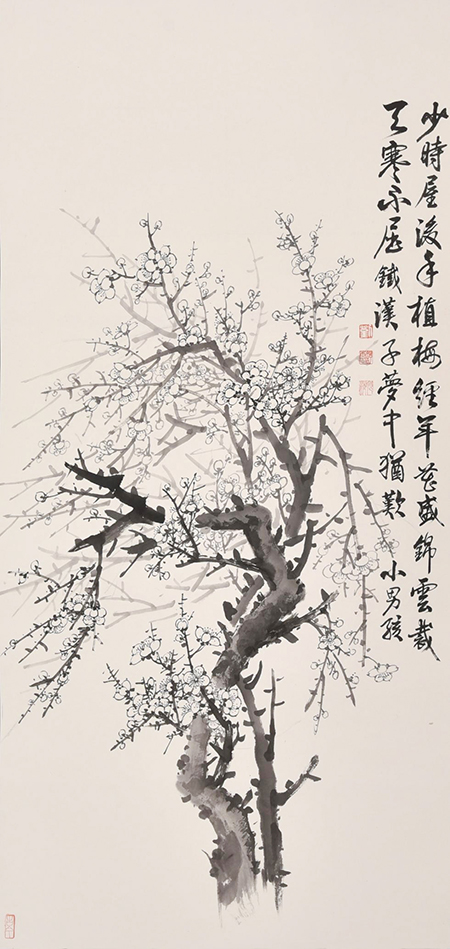 少時屋後手植梅經年花盛錦雲裁
天寒不屈鐵漢子夢中猶歎 小男孩